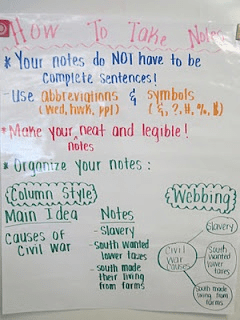 How To Take Notes
* Your notes do NOT have to be
complete sentences!
- Use abbreviations & symbols
(Wed, hwk, ppl) ( &, ?, #, %, $)
* Make your neat and legible!
notes
* Organize your notes:
Column Style
Main Idea Notes
Causes of
Civil War
- Slavery
- South wanted
lower taxes
- south made
their living
from farms
Webbing
Civil
War
causes
Slavery
South
wanted
lower
taxes
South made
living from
farms